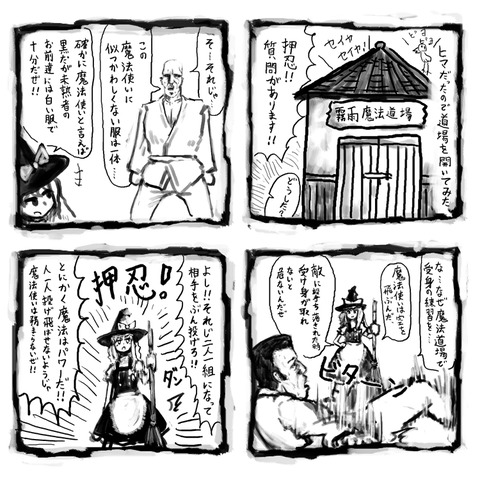 ヒマだったので道場を開いてみた。
どよどよ
セイヤ
セイヤ!
霧雨魔法道場
押忍!!
質問があります!!
どうした?
そ…それじゃ…
この
魔法使いに
似つかわしくない
服は一体…
確かに魔法使いと言えば
黒だが未熟者の
お前達には白い服で
十分だぜ!!
な…なぜ魔法道場で
受身の練習を…
魔法使いは空を
飛ぶんだ
敵に撃ち落された時
受け身が取れ
ないと
危ないんだぜ
ビターン
よし!!それじゃ二人一組になって
相手をぶん投げろ!!
押忍。
ダンッ
とにかく魔法はパワーだ!!
人一人投げ飛ばせないようじゃ
魔法使いは務まらないぜ!!